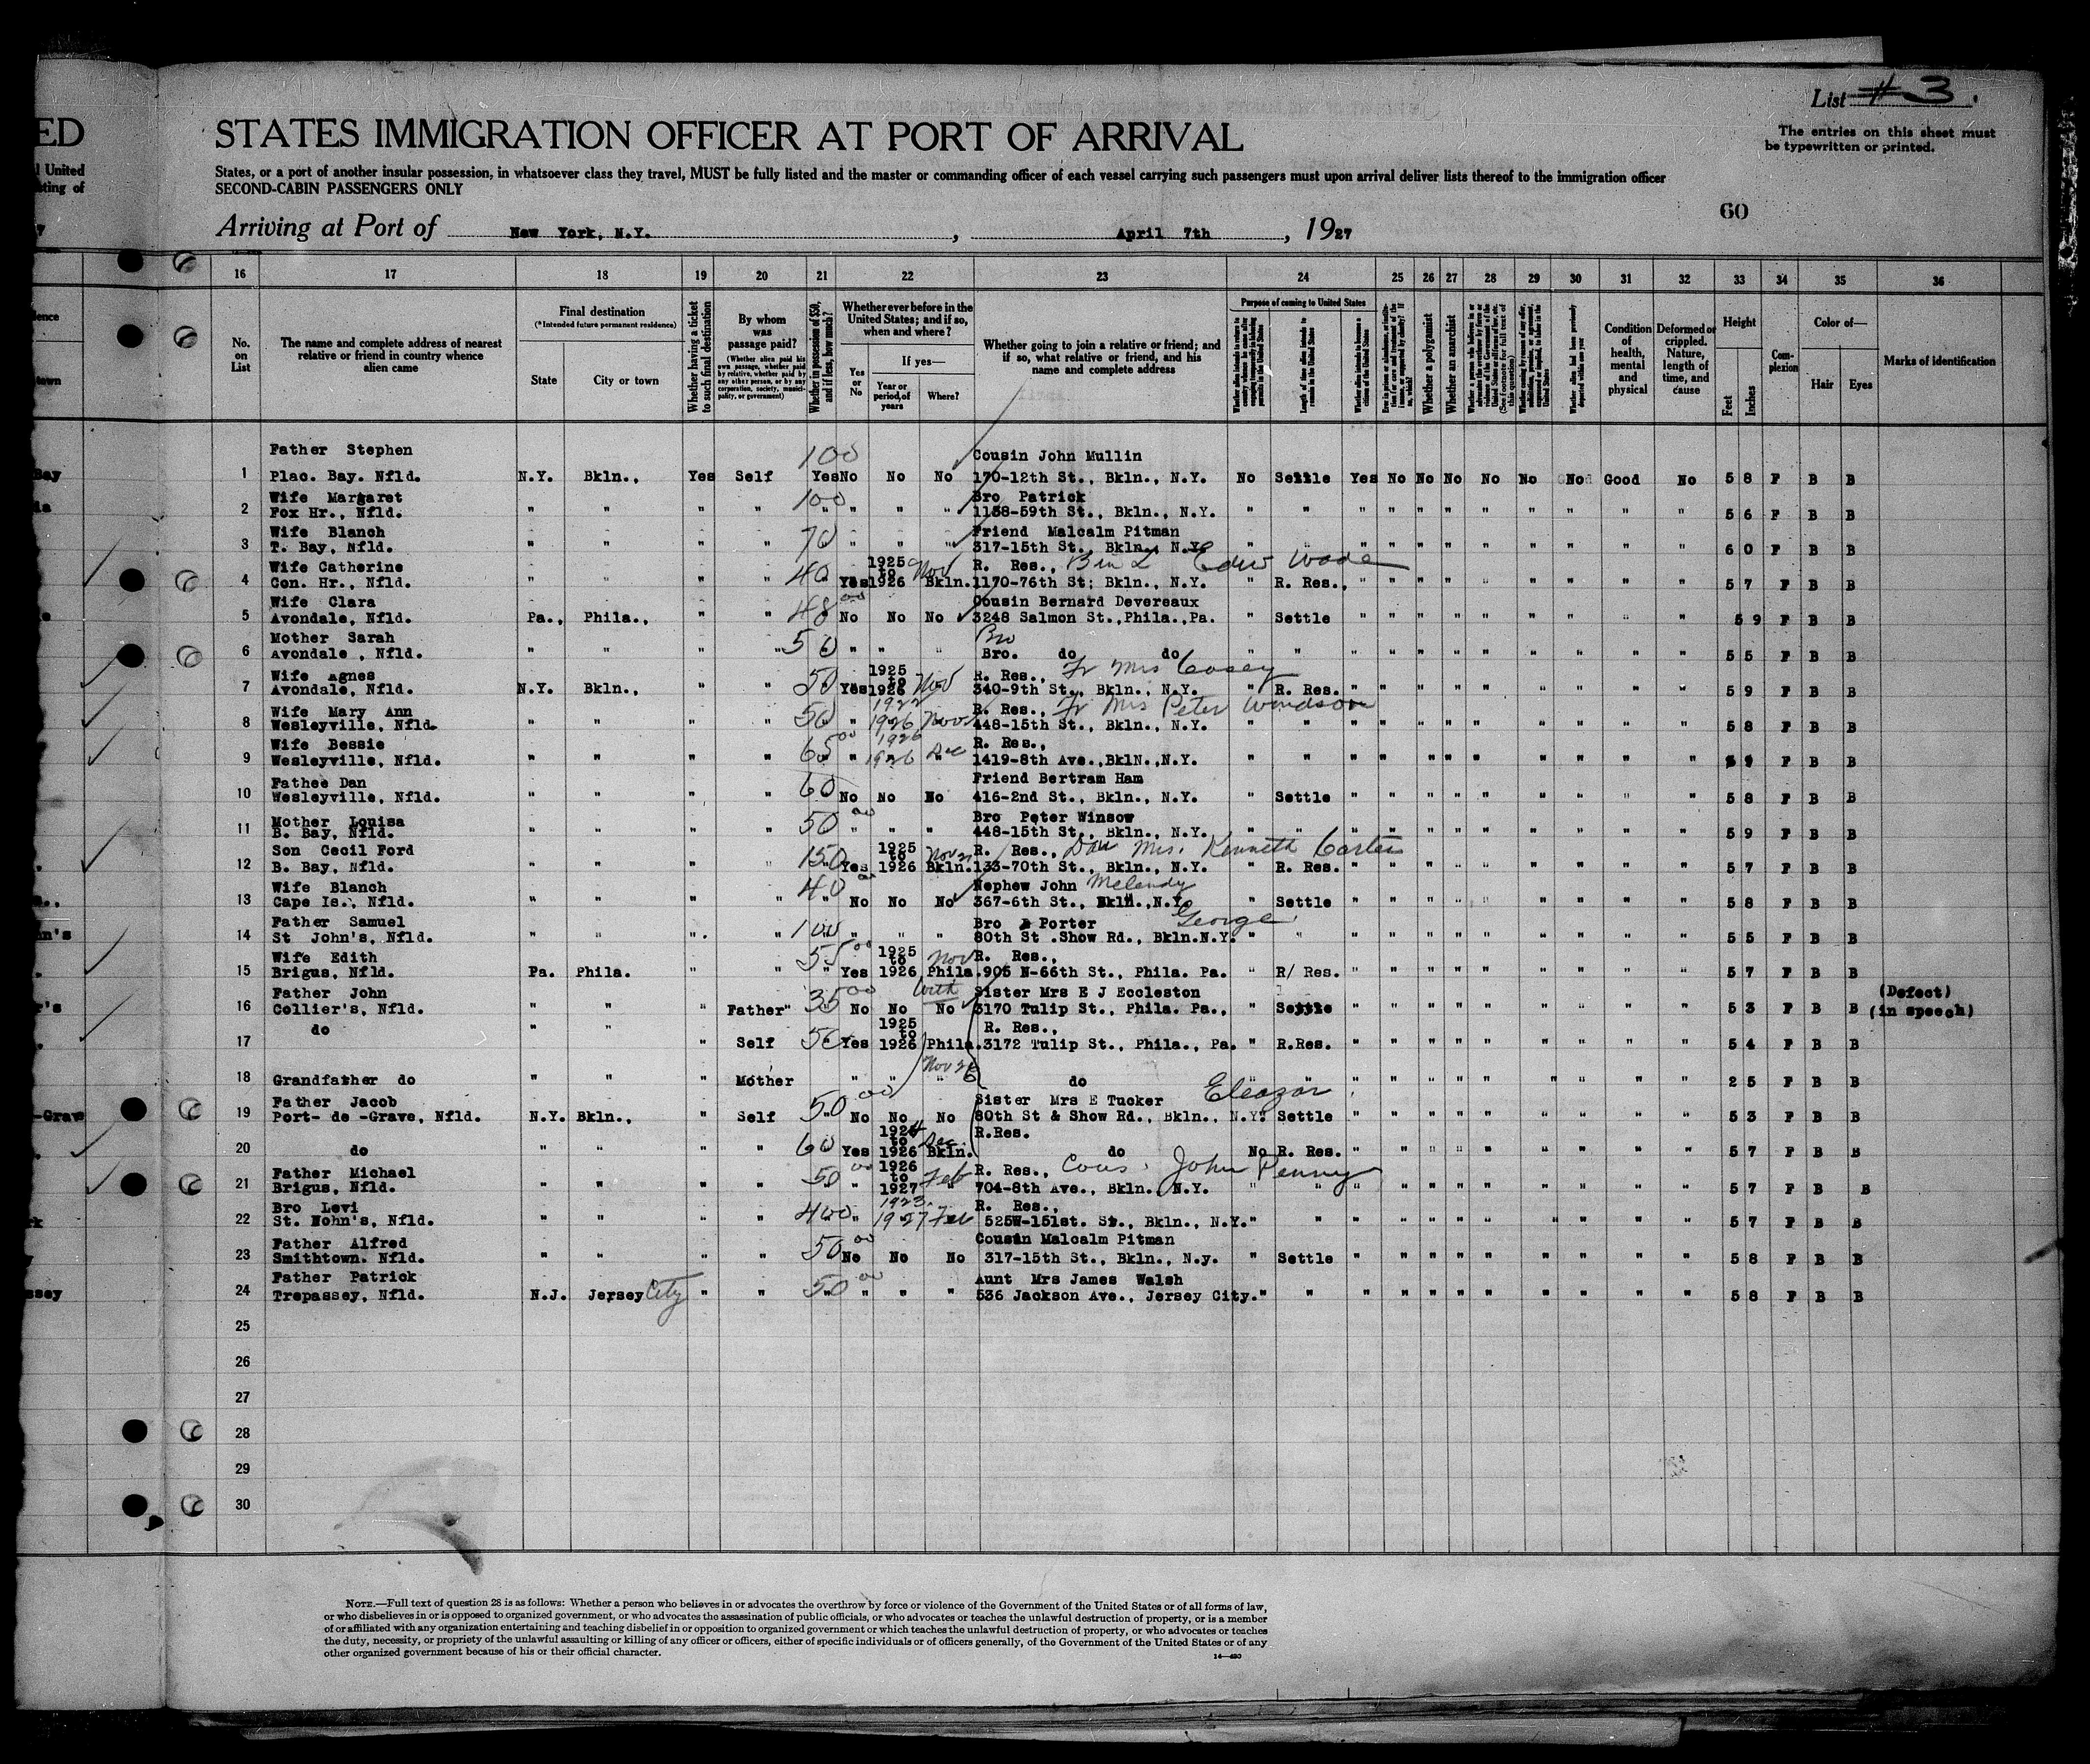 List # 3.
ED STATES IMMIGRATION OFFICER AT PORT OF ARRIVAL
The entries on this sheet must
be typewritten or printed.
United States, or a port of another insular possession, in whatsoever class they travel, MUST be fully listed and the master or commanding officer of each vessel carrying such passengers must upon arrival deliver lists thereof to the immigration officer
SECOND-CABIN PASSENGERS ONLY
60
Arriving at Port of New York, N.Y. , April 7th , 1927
16 17 18 19 20 21 22 23 24 25 26 27 28 29 30 31 32 33 34 35 36
No. on List
The name and complete address of nearest relative or friend in country whence alien came
Final destination
(*Intended future permanent residence)
State
City or town
Whether having a ticket to such final destination
By whom was passage paid?
(Whether alien paid his own passage, whether paid by relative, whether paid by any other person, or by any corporation, society, municipality, or government)
Whether in possession of $50, and if less, how much?
Whether ever before in the United States; and if so, when and where?
Yes or No
If yes—
Year or period of years
Where?
Whether going to join a relative or friend; and if so, what relative or friend, and his name and complete address
Purpose of coming to United States
Length of time alien intends to remain in the United States
Whether alien intends to become a citizen of the United States
Whether a polygamist
Whether an anarchist
Condition of health, mental and physical
Deformed or crippled. Nature, length of time, and cause
Height
Feet
Inches
Complexion
Color of—
Hair
Eyes
Marks of identification
Father Stephen 100 Cousin John Mullin
1 Plac. Bay. Nfld. N.Y. Bkln., Yes Self Yes No No No 170-12th St., Bkln., N.Y. No Settle Yes No No No No No No Good No 5 8 F B B
Wife Margaret 100 Bro Patrick
2 Fox Hr., Nfld. " " " " " " " " 1158-59th St., Bkln., N.Y. " " " " " " " " " " " 5 6 F B B
Wife Blanch 70 Friend Malcalm Pitman
3 T. Bay, Nfld. " " " " " " " " 317-15th St., Bkln., N.Y. " " " " " " " " " " " 6 0 F B B
Wife Catherine 40 1925 to Nov R. Res., Edw Wade
4 Con. Hr., Nfld. " " " " Yes 1926 Bkln. 1170-76th St; Bkln., N.Y. " R. Res., " " " " " " " " " 5 7 F B B
Wife Clara 48 00 Cousin Bernard Devereaux
5 Avondale, Nfld. Pa., Phila., " " " No No No 3248 Salmon St., Phila., Pa. " Settle " " " " " " " " " 5 9 F B B
Mother Sarah 50 Bro
6 Avondale , Nfld. " " " " " " " Bro. do do " " " " " " " " " " " 5 5 F B B
Wife Agnes 50 1925 to R. Res., Fr Mrs Casey
7 Avondale, Nfld. N.Y. Bkln., " " Yes 1926 Nov 340-9th St., Bkln., N.Y. " R. Res. " " " " " " " " " 5 9 F B B
Wife Mary Ann 50 1922 R. Res., Fr Mrs Peter Windsor
8 Wesleyville, Nfld. " " " " " 1926 Nov 448-15th St., Bkln., N.Y. " " " " " " " " " " " 5 8 F B B
Wife Bessie 65 00 1926 R. Res.,
9 Wesleyville, Nfld. " " " " " 1926 Dec 1419-8th Ave., Bkln., N.Y. " " " " " " " " " " " F B B
Fathee Dan 60 Friend Bertram Ham
10 Wesleyville, Nfld. " " " " No No No 416-2nd St., Bkln., N.Y. " Settle " " " " " " " " " 5 8 F B B
Mother Louisa 50 00 Bro Peter Winsow
11 B. Bay, Nfld. " " " " " " " 448-15th St., Bkln., N.Y. " " " " " " " " " " " 5 9 F B B
Son Cecil Ford 150 1925 to Nov R. Res., Dau Mrs. Kenneth Carter
12 B. Bay, Nfld. " " " " Yes 1926 Bkln. 133-70th St., Bkln., N.Y. R. Res. " " " " " " " " " 5 7 F B B
Wife Blanch 40 00 Nephew John Melendy
13 Cape Is., Nfld. " " " " " No No No 367-6th St., Bkln., N.Y. " Settle " " " " " " " " " 5 8 F B B
Father Samuel 100 Bro Porter George
14 St John's, Nfld. " " " " " " " 80th St .Show Rd., Bkln.N.Y. " " " " " " " " " " " 5 5 F B B
Wife Edith 55 00 1925 to Nov R. Res.,
15 Brigus, Nfld. Pa. Phila. " " " Yes 1926 Phila. 905 N-66th St., Phila. Pa. " R/ Res. " " " " " " " " " 5 7 F B B
Father John 35 00 With Sister Mrs E J Eccleston (Defect)
16 Collier's, Nfld. " " " Father " No No No 3170 Tulip St., Phila. Pa., " Settle " " " " " " " " " 5 3 F B B (in speech)
do " " 1925 to R. Res.,
17 " Self 50 Yes 1926 Phila. 3172 Tulip St., Phila., Pa. " R.Res. " " " " " " " " " 5 4 F B B
Nov 26
18 Grandfather do " " " Mother " " " do " " " " " " " " " " 2 5 F B B
Father Jacob 50 00 Sister Mrs E Tucker Eleazar
19 Port- de -Grave, Nfld. N.Y. Bkln., " Self " No No No 80th St & Show Rd., Bkln., N.Y. Settle " " " " " " " " " 5 3 F B B
1924 to Dec. R.Res.
20 do " " " " 60 Yes 1926 Bkln. do No R. Res. " " " " " " " " " 5 7 F B B
Father Michael 50 00 1926 to Feb R. Res., Cous. John Kenny
21 Brigus, Nfld. " " " " " 1927 " 704-8th Ave., Bkln. N.Y. " " " " " " " " " " " 5 7 F B B
Bro Levi 400 1923 R. Res.,
22 St. Nohn's, Nfld. " " " " " 1927 Feb 525W-151st. St., Bkln., N.Y. " " " " " " " " " " " 5 7 F B B
Father Alfred 50 00 Cousin Malcalm Pitman
23 Smithtown. Nfld. " " " " No No No 317-15th St., Bkln., N.y. " Settle " " " " " " " " " 5 8 F B B
Father Patrick 50 00 Aunt Mrs James Walsh
24 Trepassey, Nfld. N.J. Jersey City " " " " " " 536 Jackson Ave., Jersey City. " " " " " " " " " " " 5 8 F B B
25
26
27
28
29
30
NOTE.—Full text of question 28 is as follows: Whether a person who believes in or advocates the overthrow by force or violence of the Government of the United States or of all forms of law,
or who disbelieves in or is opposed to organized government, or who advocates the assassination of public officials, or who advocates or teaches the unlawful destruction of property, or is a member
of or affiliated with any organization entertaining and teaching disbelief in or opposition to organized government or which teaches the unlawful destruction of property, or who advocates or teaches
the duty, necessity, or propriety of the unlawful assaulting or killing of any officer or officers, either of specific individuals or of officers generally, of the Government of the United States or of any
other organized government because of his or their official character.